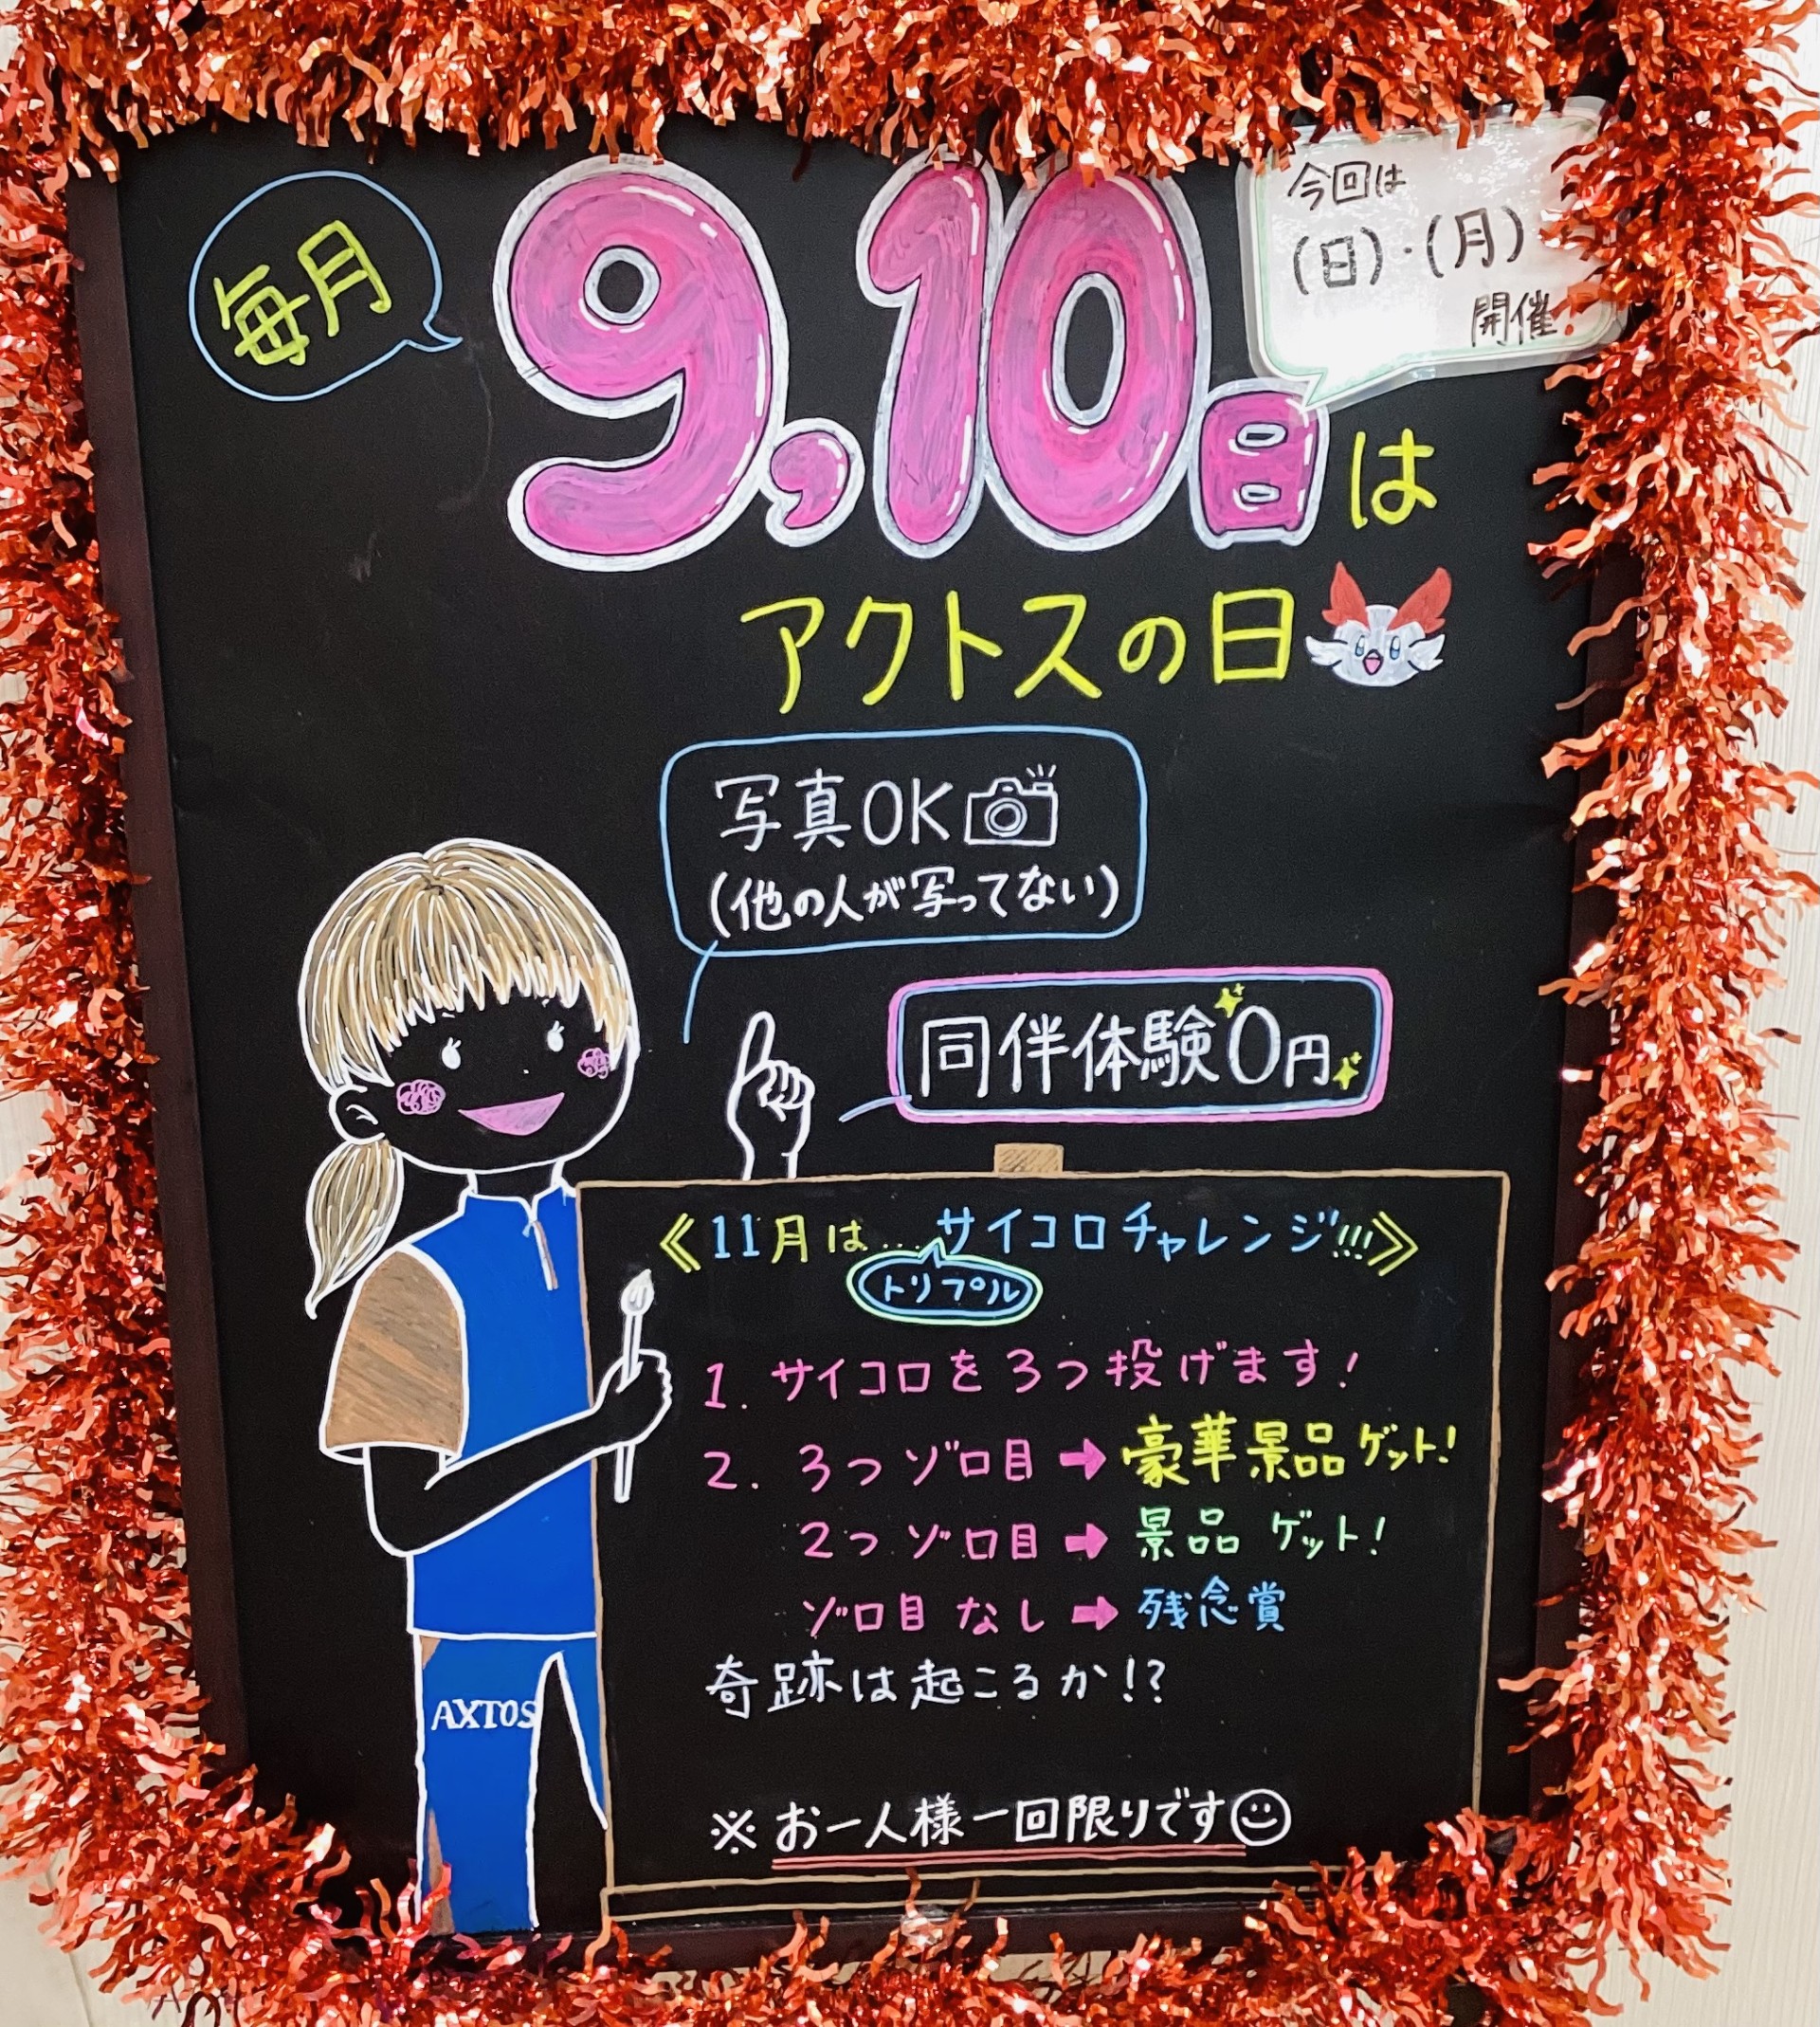 毎月
9,10日は
今回は
(日)・(月)
開催!
アクトスの日
写真OK
(他の人が写ってない)
同伴体験0円
《11月は...サイコロチャレンジ!!!》
トリプル
1. サイコロを3つ投げます!
2. 3つゾロ目➡豪華景品ゲット!
2つゾロ目➡景品ゲット!
ゾロ目なし➡残念賞
奇跡は起こるか!?
※お一人様一回限りです
AXTOS